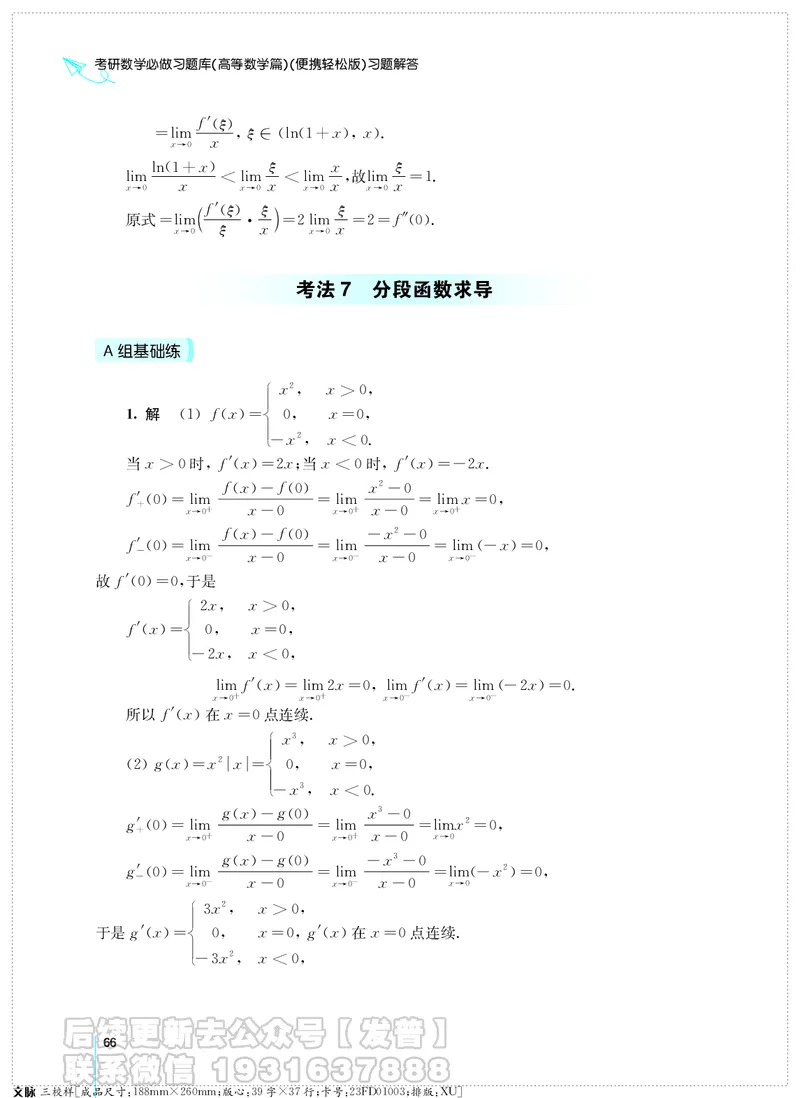 考研数学必做习题库(高等数学篇)(便携轻松版)习题解答
=lim_{x→0} f′(ξ)/x, ξ∈(ln(1+x), x).
lim_{x→0} ln(1+x)/x < lim_{x→0} ξ/x < lim_{x→0} x/x,故lim_{x→0} ξ/x=1.
原式=lim_{x→0}(f′(ξ)/ξ · ξ/x)=2 lim_{x→0} ξ/x=2=f″(0).
考法7 分段函数求导
A组基础练
1. 解 (1) f(x)={ x², x>0,
0, x=0,
-x², x<0.
当x>0时, f′(x)=2x;当x<0时, f′(x)=-2x.
f′₊(0)=lim_{x→0⁺} (f(x)-f(0))/(x-0)=lim_{x→0⁺} (x²-0)/(x-0)=lim_{x→0⁺} x=0,
f′₋(0)=lim_{x→0⁻} (f(x)-f(0))/(x-0)=lim_{x→0⁻} (-x²-0)/(x-0)=lim_{x→0⁻}(-x)=0,
故f′(0)=0,于是
f′(x)={ 2x, x>0,
0, x=0,
-2x, x<0,
lim_{x→0⁺} f′(x)=lim_{x→0⁺} 2x=0, lim_{x→0⁻} f′(x)=lim_{x→0⁻}(-2x)=0.
所以f′(x)在x=0点连续.
(2) g(x)=x²|x|={ x³, x>0,
0, x=0,
-x³, x<0.
g′₊(0)=lim_{x→0⁺} (g(x)-g(0))/(x-0)=lim_{x→0⁺} (x³-0)/(x-0)=lim_{x→0} x²=0,
g′₋(0)=lim_{x→0⁻} (g(x)-g(0))/(x-0)=lim_{x→0⁻} (-x³-0)/(x-0)=lim_{x→0}(-x²)=0,
于是g′(x)={ 3x², x>0,
0, x=0, g′(x)在x=0点连续.
-3x², x<0,
后续更新去公众号【发普】
66
联系微信 1931637888
文脉 三校样[成品尺寸:188mm×260mm;版心:39字×37行;卡号:23FD01003;排版:XU]